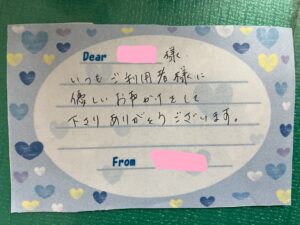 Dear 様
いつもご利用者様に
優しいお声かけをして
下さりありがとうございます。
From